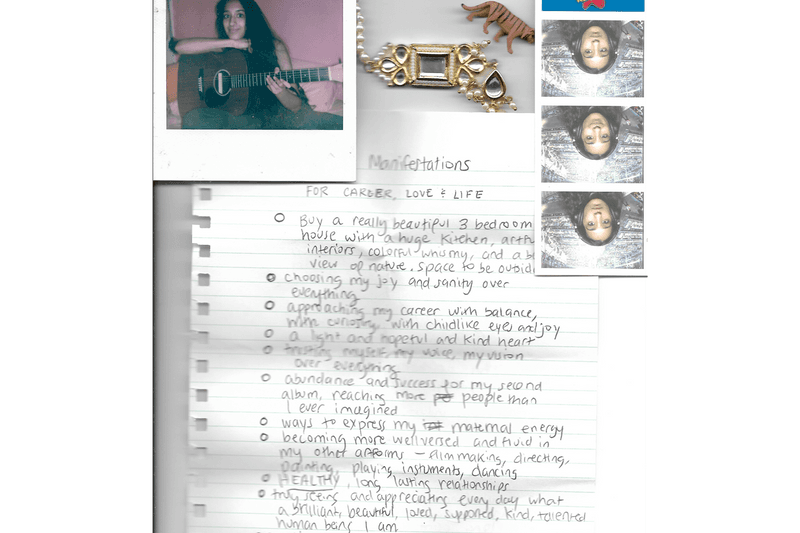 Manifestations
FOR CAREER, LOVE & LIFE
Buy a really beautiful 3 bedroom
house with a huge kitchen,
interiors, colorful whismy, and a
view of nature. space to be
choosing my joy and sanity over
everything
approaching my career with balance,
with curiosity, with childlike eyes and joy
a light and hopeful and kind heart
trusting myself, my voice, my vision
over everything
abundance and success for my second
album, reaching more people than
I ever imagined
ways to express my maternal energy
becoming more wellversed and fluid in
my other artforms – filmmaking, directing,
painting, playing instuments, dancing
HEALTHY, long lasting relationships
truly seeing and appreciating every day what
a brilliant, beautiful, loved, supported, kind, talented
human being I am